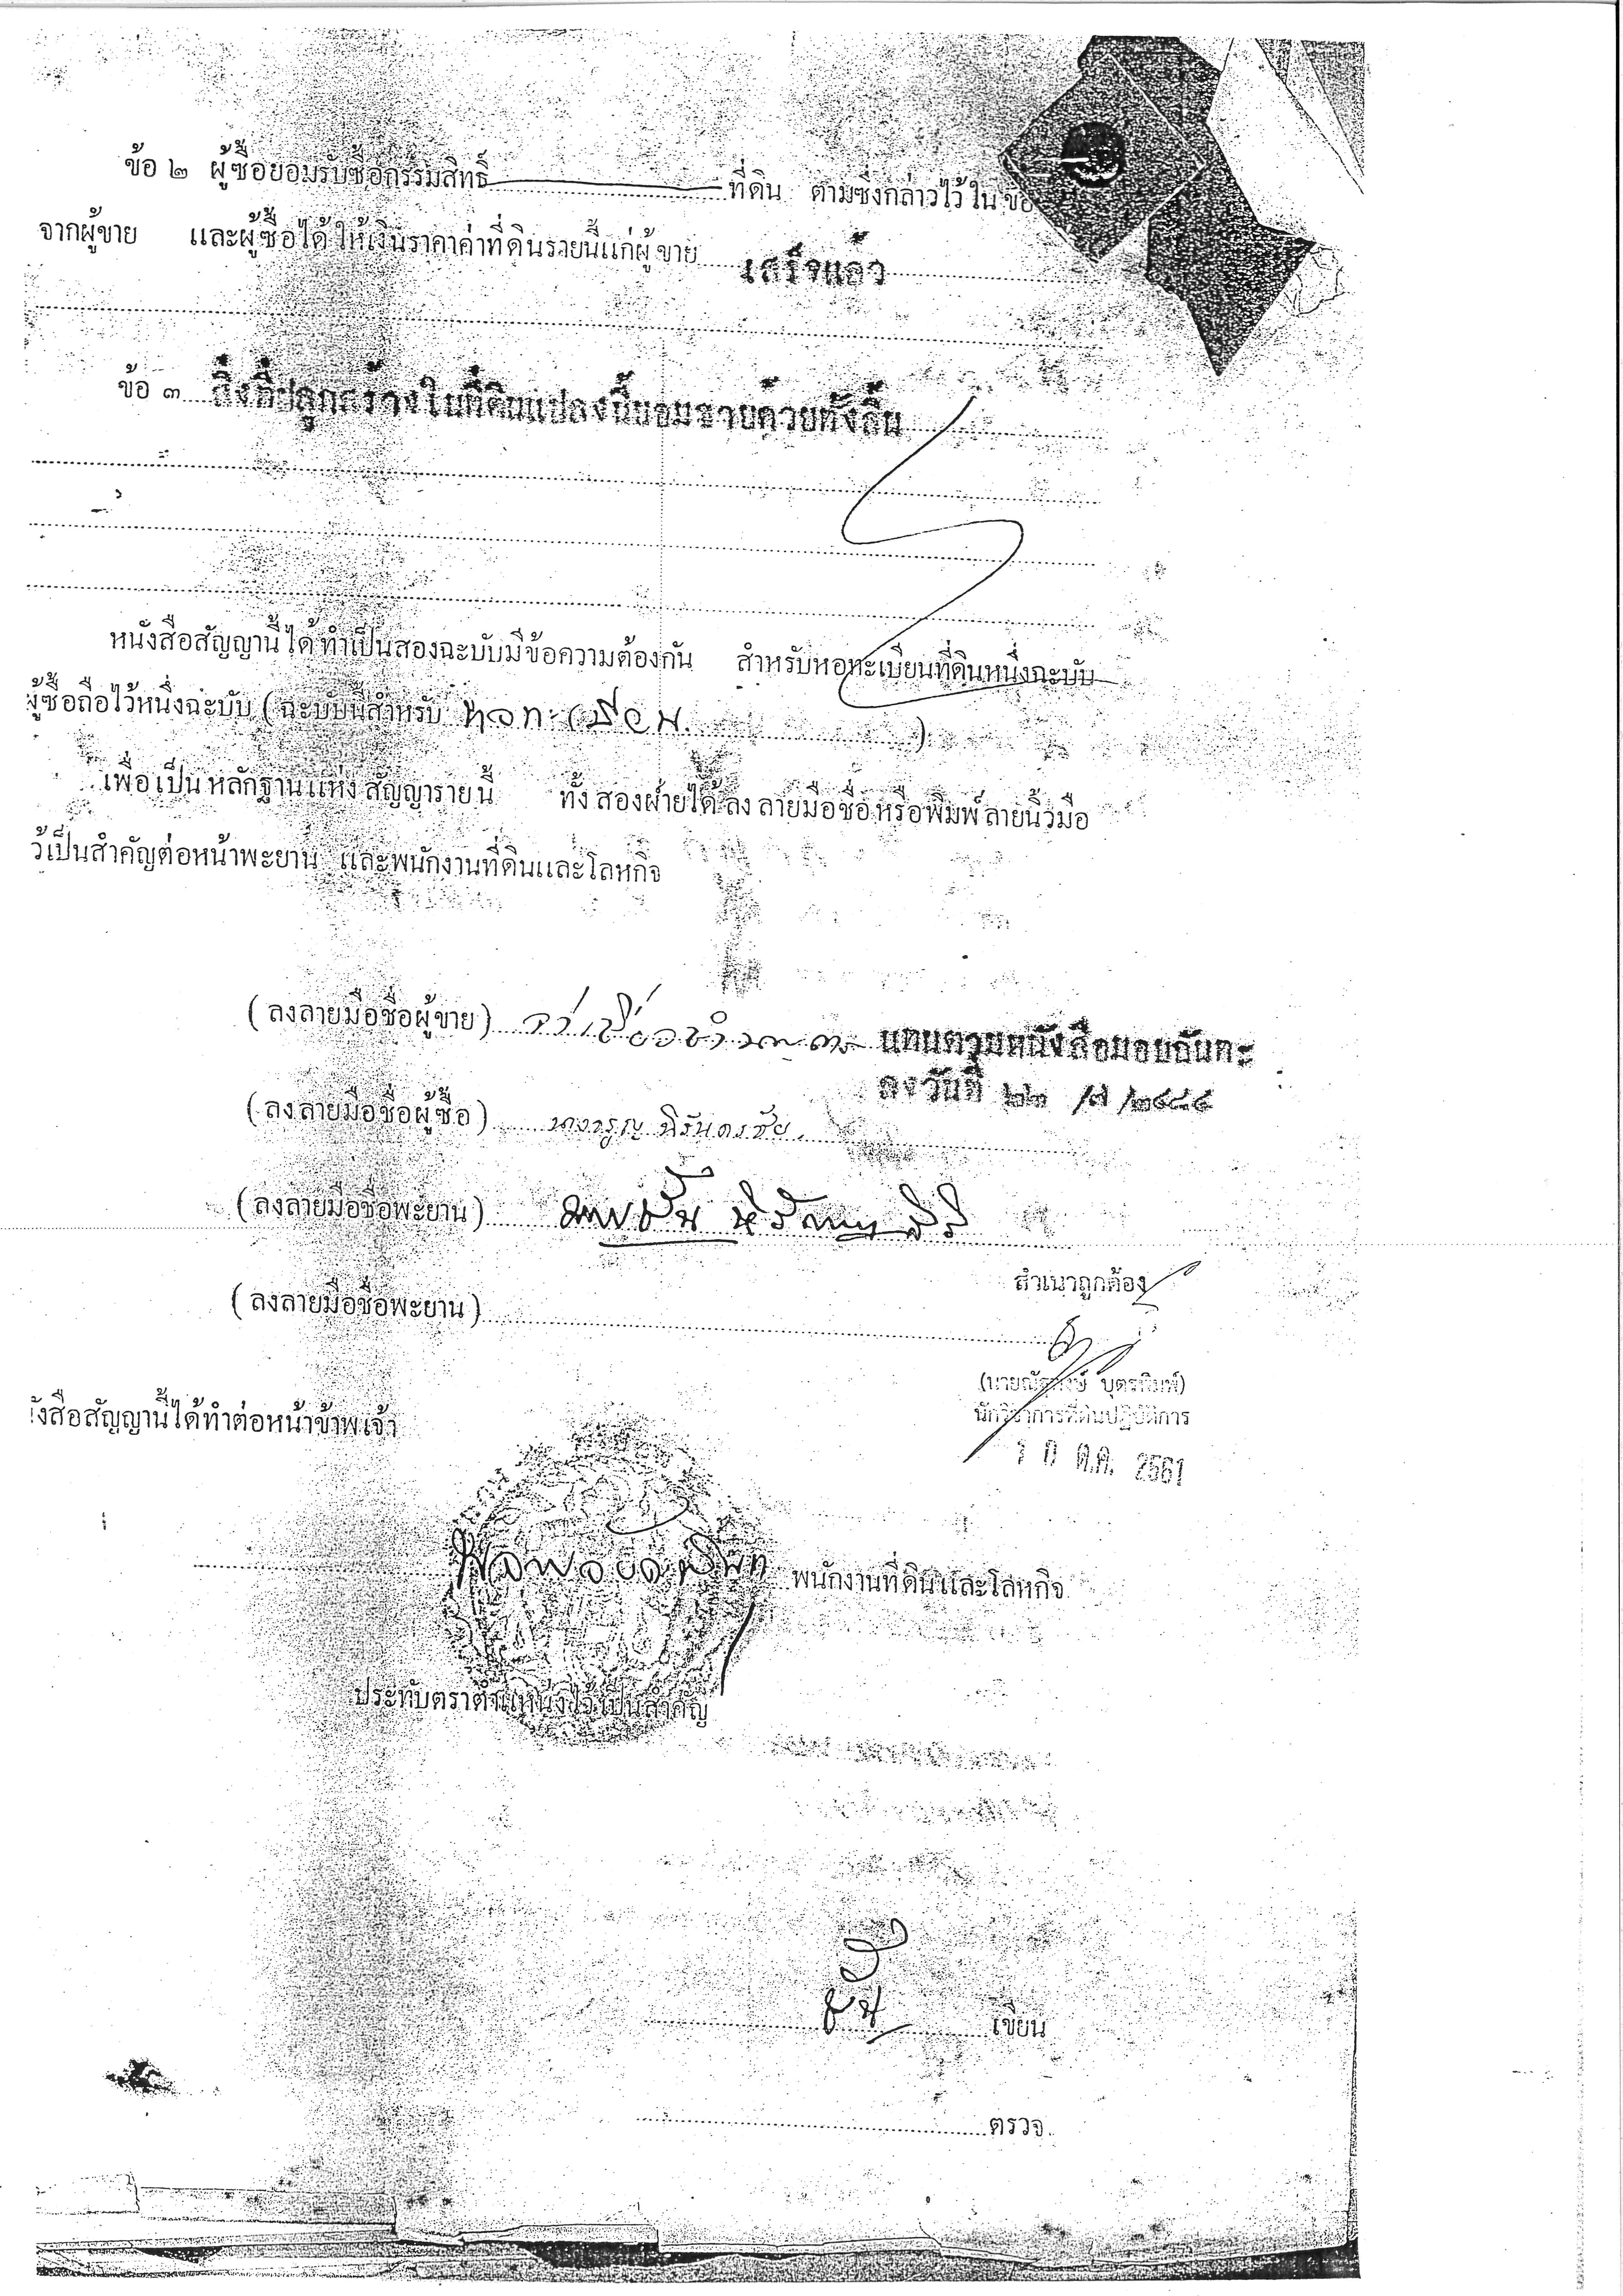 ข้อ ๒ ผู้ซื้อยอมรับซื้อกรรมสิทธิ์ ที่ดิน ตามซึ่งกล่าวไว้ ใน ข้อ
จากผู้ขาย และผู้ซื้อได้ ให้เงินราคาค่าที่ดินรายนี้แก่ผู้ขาย เสร็จแล้ว
ข้อ ๓ สิ่งที่ปลูกสร้างในที่ดินแปลงนี้ยอมขายด้วยทั้งสิ้น
หนังสือสัญญานี้ได้ทำเป็นสองฉะบับมีข้อความต้องกัน สำหรับหอทะเบียนที่ดินหนึ่งฉะบับ
ผู้ซื้อถือไว้หนึ่งฉะบับ (ฉะบับนี้สำหรับ หอทะเบียน )
เพื่อเป็นหลักฐานแห่งสัญญารายนี้ ทั้งสองฝ่ายได้ลงลายมือชื่อหรือพิมพ์ลายนิ้วมือ
ว้เป็นสำคัญต่อหน้าพะยาน และพนักงานที่ดินและโลหกิจ
(ลงลายมือชื่อผู้ขาย) แทนตามหนังสือมอบฉันทะ
ลงวันที่ ๒๒ /๗ /๒๔๘๔
(ลงลายมือชื่อผู้ซื้อ) นิรันดรชัย
(ลงลายมือชื่อพะยาน)
สำเนาถูกต้อง
(ลงลายมือชื่อพะยาน)
บุตรพิมพ์)
นักวิชาการที่ดินปฏิบัติการ
ังสือสัญญานี้ได้ทำต่อหน้าข้าพเจ้า
ต.ค. 2561
พนักงานที่ดินและโลหกิจ
ประทับตราตำแหน่งไว้เป็นสำคัญ
เขียน
ตรวจ